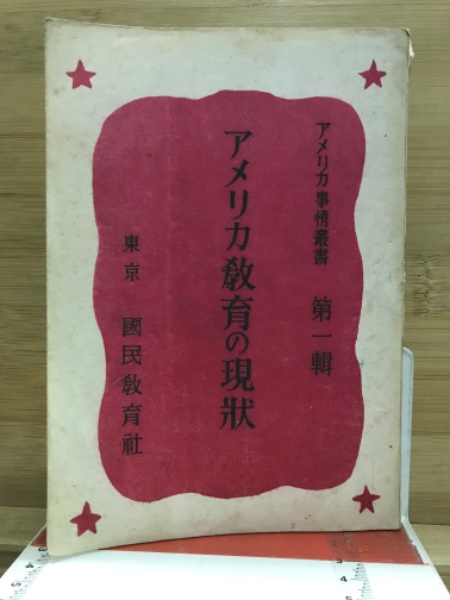 アメリカ事情叢書 第一輯
アメリカ敎育の現狀
東京 國民敎育社